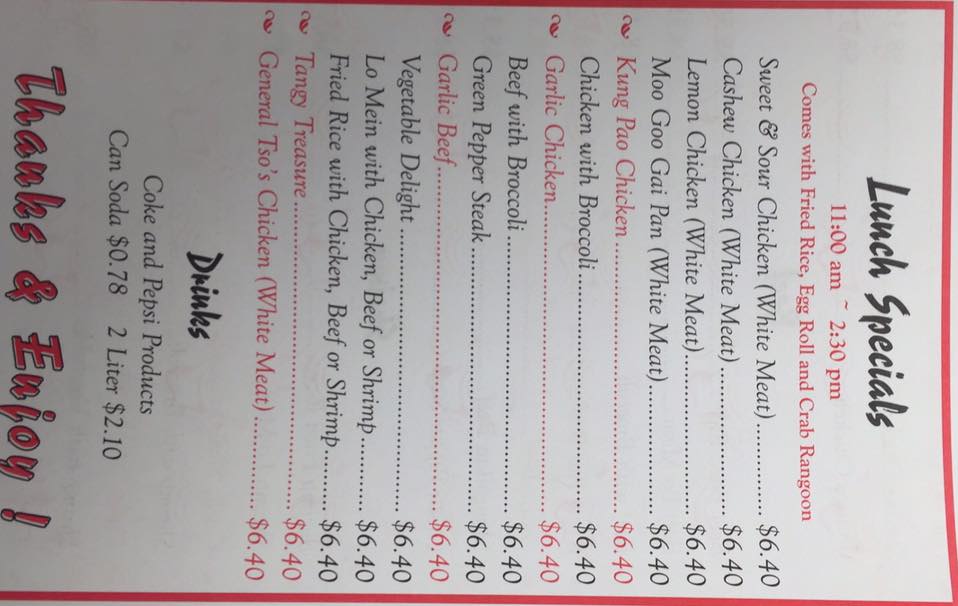 Lunch Specials
11:00 am ~ 2:30 pm
Comes with Fried Rice, Egg Roll and Crab Rangoon
Sweet & Sour Chicken (White Meat)............... $6.40
Cashew Chicken (White Meat)........................ $6.40
Lemon Chicken (White Meat).......................... $6.40
Moo Goo Gai Pan (White Meat)..................... $6.40
Kung Pao Chicken ............................................ $6.40
Chicken with Broccoli....................................... $6.40
Garlic Chicken.................................................. $6.40
Beef with Broccoli ............................................. $6.40
Green Pepper Steak ........................................... $6.40
Garlic Beef........................................................ $6.40
Vegetable Delight .............................................. $6.40
Lo Mein with Chicken, Beef or Shrimp............ $6.40
Fried Rice with Chicken, Beef or Shrimp.......... $6.40
Tangy Treasure .................................................. $6.40
General Tso's Chicken (White Meat) ............... $6.40
Drinks
Coke and Pepsi Products
Can Soda $0.78 2 Liter $2.10
Thanks & Enjoy !